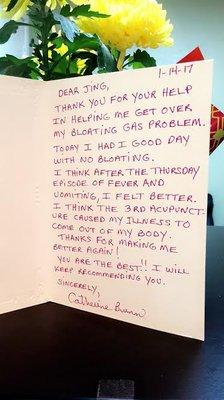 1-14-17
DEAR JING,
THANK YOU FOR YOUR HELP
IN HELPING ME GET OVER
MY BLOATING GAS PROBLEM.
TODAY I HAD I GOOD DAY
WITH NO BLOATING.
I THINK AFTER THE THURSDAY
EPISODE OF FEVER AND
VOMITING, I FELT BETTER.
I THINK THE 3RD ACUPUNCT.
URE CAUSED MY ILLNESS TO
COME OUT OF MY BODY.
THANKS FOR MAKING ME
BETTER AGAIN!
YOU ARE THE BEST!! I WILL
KEEP RECOMMENDING YOU.
SINCERELY,
Catherine